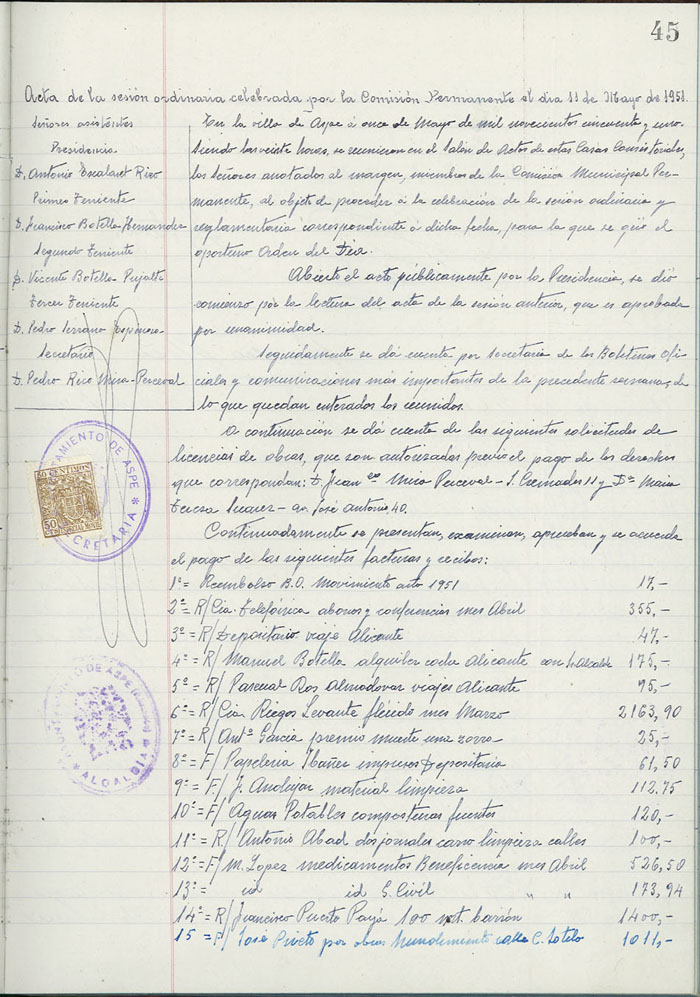 45
Acta de la sesión ordinaria celebrada por la Comisión Permanente el dia 11 de Mayo de 1951.
Señores asistentes
Presidencia
D. Antonio Escalant Rico
Primer Teniente
D. Francisco Botella Hernandez
Segundo Teniente
D. Vicente Botella Pujalte
Tercer Teniente
D. Pedro Serrano Espinosa
Secretario
D. Pedro Rico Mira-Perceval
En la villa de Aspe á once de Mayo de mil novecientos cincuenta y uno
siendo las veinte horas, se reunieron en el Salón de Actos de estas Casas Consistoriales,
los Señores anotados al margen, miembros de la Comisión Municipal Per-
manente, al objeto de proceder á la celebración de la sesión ordinaria y
reglamentaria correspondiente á dicha fecha, para la que se giró el
oportuno Orden del Dia.
Abierto el acto públicamente por la Presidencia, se dió
comienzo por la lectura del acta de la sesión anterior, que es aprobada
por unanimidad.
Seguidamente se dá cuenta por Secretaria de los Boletines Ofi-
ciales y comunicaciones más importantes de la precedente semana, de
lo que quedan enterados los reunidos.
A continuación se dá cuenta de las siguientes solicitudes de
licencias de obras, que son autorizadas previo el pago de los derechos
que correspondan: D. Juan Mira Perceval - 11 y Dª Maria
Teresa Suarez - Av. José Antonio 40.
Continuadamente se presentan, examinan, aprueban y se acuerda
el pago de las siguientes facturas y recibos:
1º = Reembolso B.O. Movimiento año 1951 17,-
2º = R/ Cia. Telefónica abonos y conferencias mes Abril 355,-
3º = R/ Depositario viaje Alicante 47,-
4º = R/ Manuel Botella alquiler coche Alicante con Sr. Alcalde 175,-
5º = R/ Pascual Dos Almodovar viajes Alicante 95,-
6º = R/ Cia. Riegos Levante flúido mes Marzo 2163,90
7º = R/ Antº Garcia premio muerte una zorra 25,-
8º = F/ Papeleria Ibañez impresos Depositaria 61,50
9º = F/ J. Andujar material limpieza 112,75
10º = F/ Aguas Potables composturas fuentes 120,-
11º = R/ Antonio Abad dos jornales carro limpieza calles 100,-
12º = F/ M. Lopez medicamentos Beneficencia mes Abril 526,50
13º = id id G. Civil " " 173,94
14º = R/ Francisco Puerto Payá 100 mt. 1400,-
15 = F/ José Prieto por obras hundimiento calle C. Sotelo 1011,-
AYUNTAMIENTO DE ASPE
SECRETARIA
50 CENTIMOS
50
AYUNTAMIENTO DE ASPE
ALCALDIA